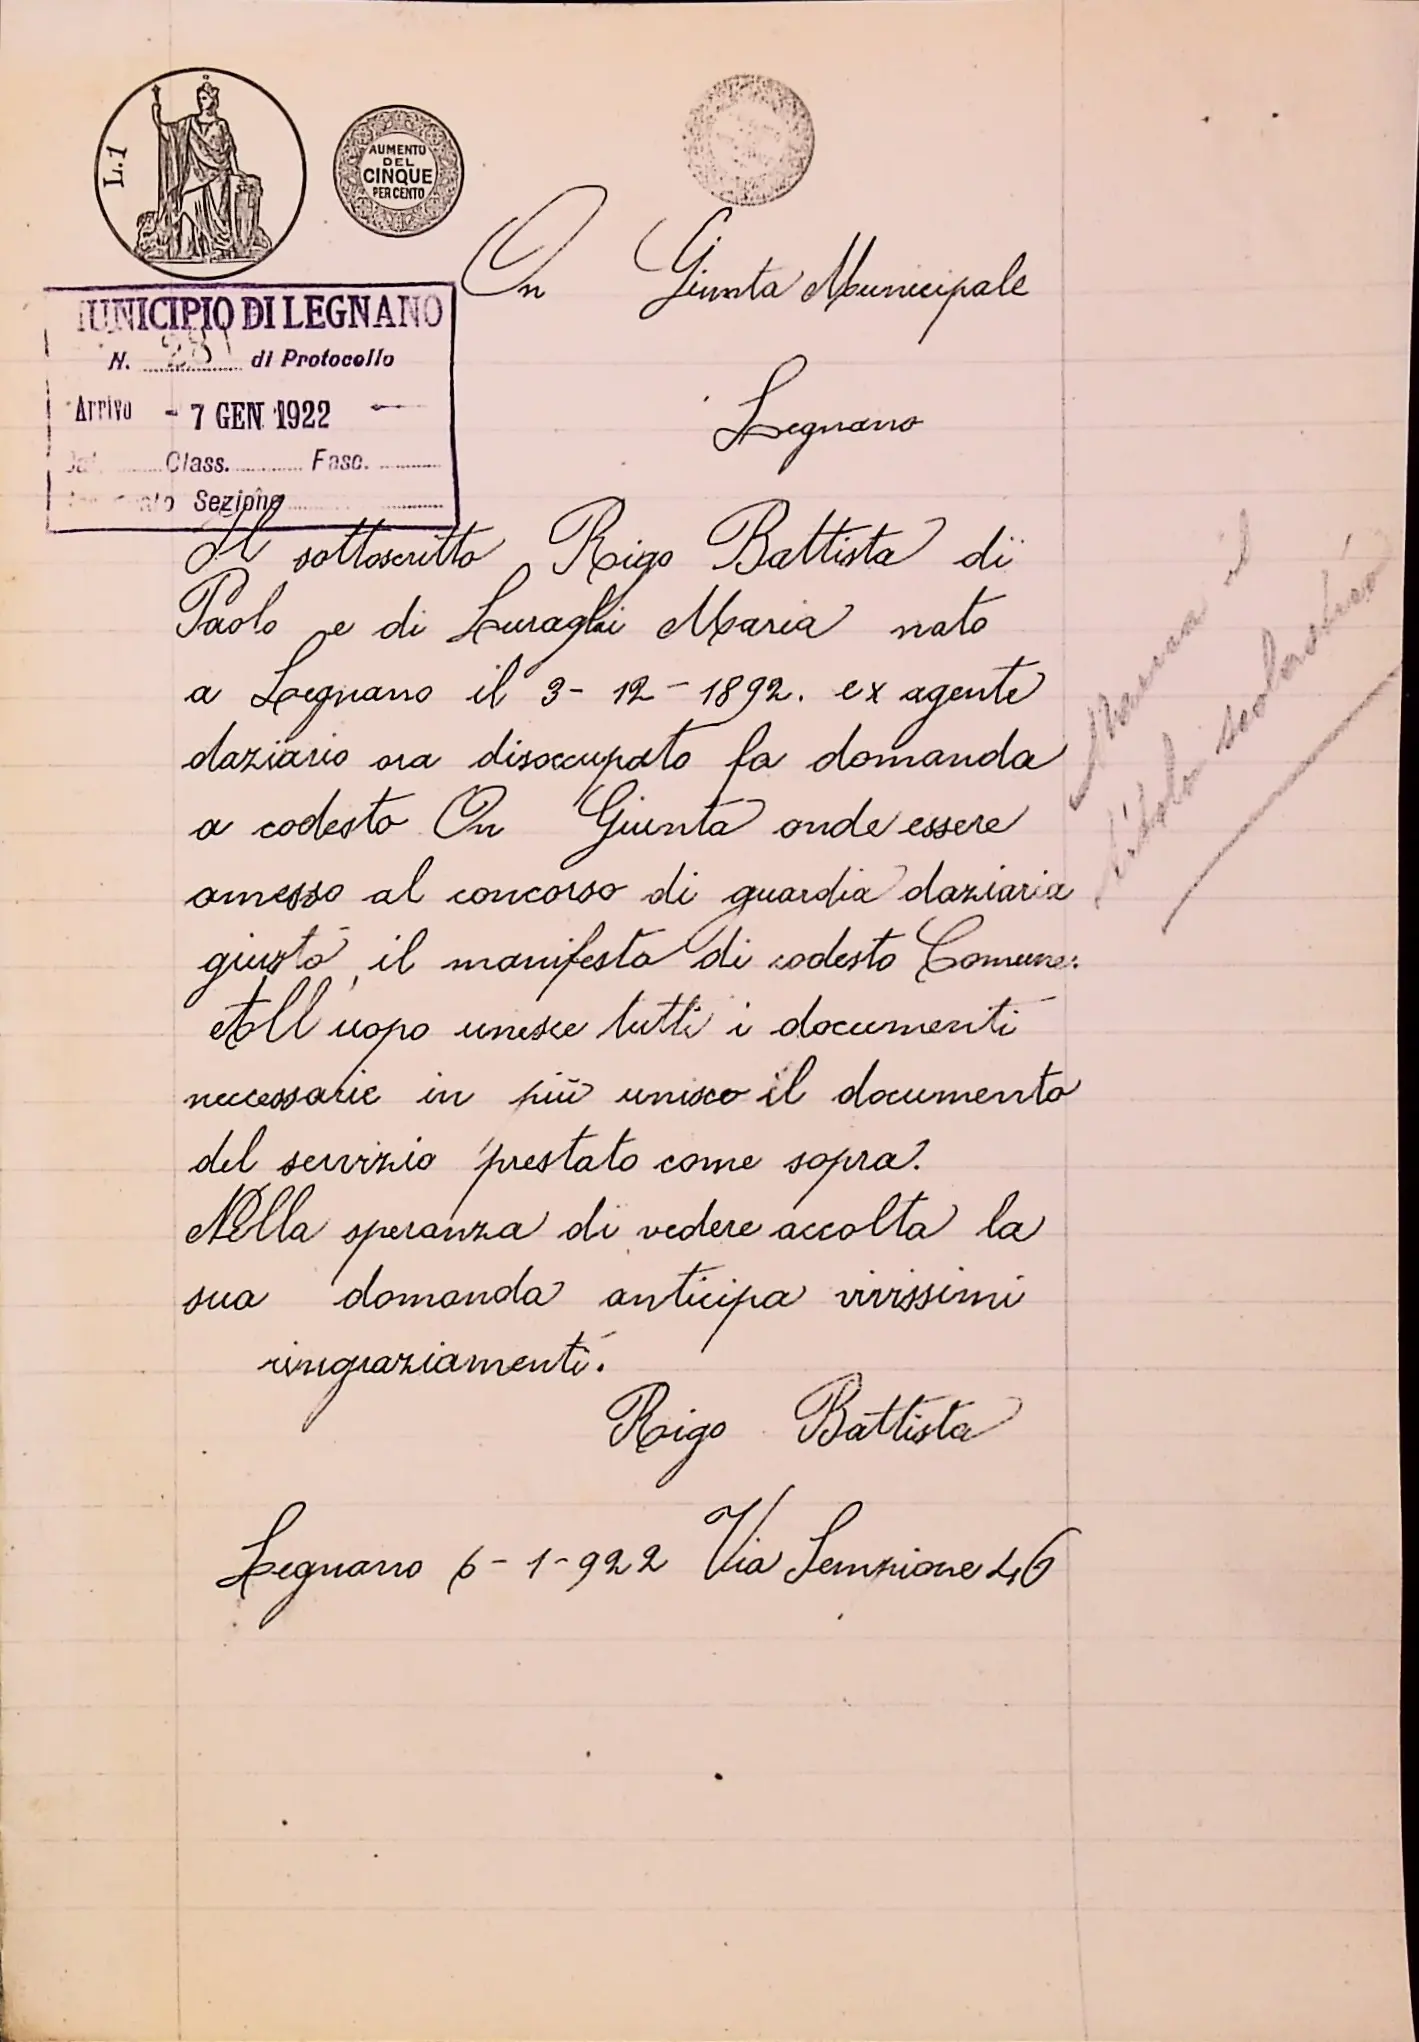 L.1
AUMENTO
DEL
CINQUE
PER CENTO
On Giunta Municipale
Legnano
MUNICIPIO DI LEGNANO
N. 281 di Protocollo
Arrivo - 7 GEN 1922
Class. Fasc.
Sezione
Il sottoscritto Rigo Battista di
Paolo e di Luraghi Maria nato
a Legnano il 3-12-1892. ex agente
daziario ora disoccupato fa domanda
a codesto On Giunta onde essere
amesso al concorso di guardia daziaria
giusto il manifesto di codesto Comune.
All'uopo unesce tutti i documenti
neccessarie in più unisco il documento
del servizio prestato come sopra.
Nella speranza di vedere accolta la
sua domanda anticipa vivissimi
ringraziamenti.
Rigo Battista
Legnano 6-1-922 Via Sempione 46
Manca il
titolo scolastico